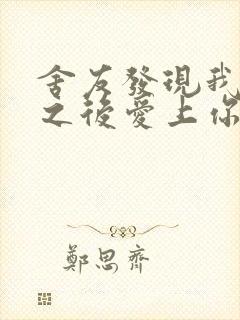 舍友發現我
之後愛上你
鄭思齊